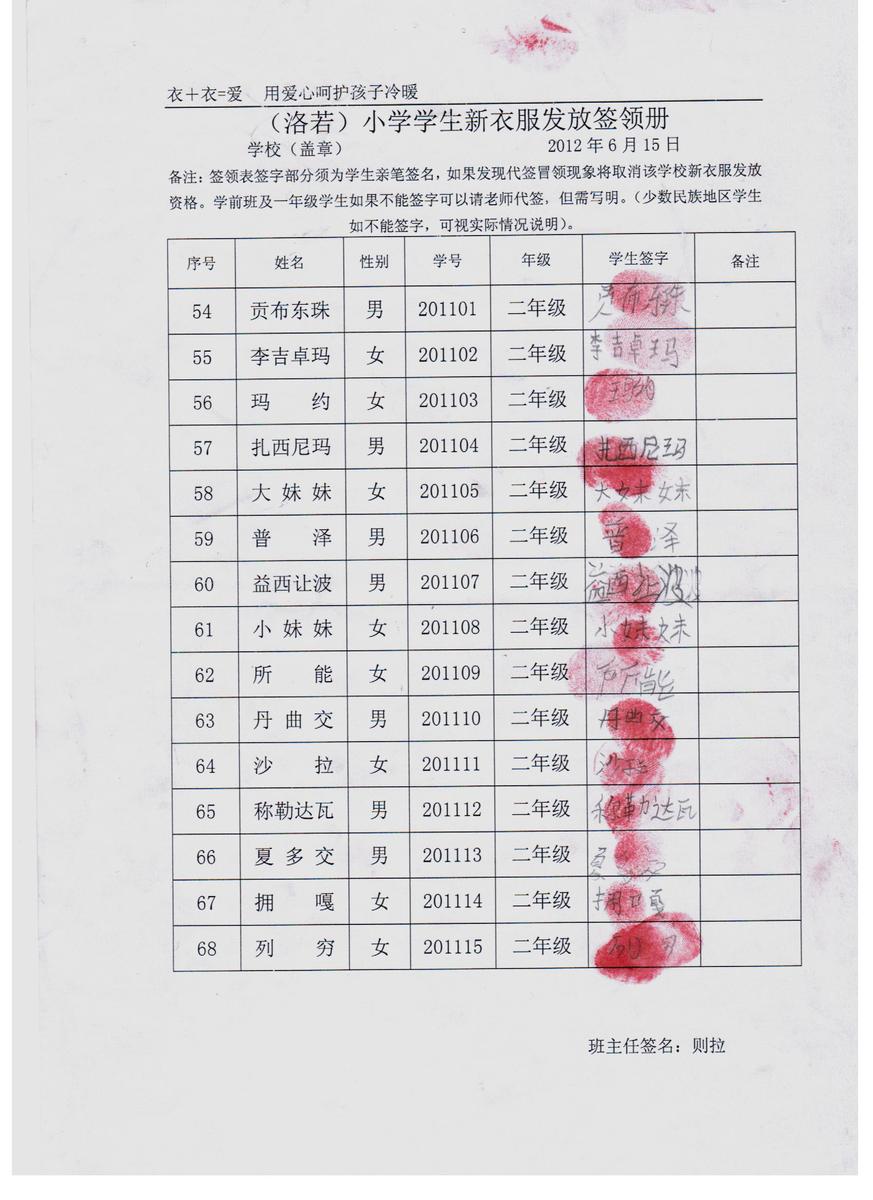 衣+衣=爱 用爱心呵护孩子冷暖
（洛若）小学学生新衣服发放签领册
学校（盖章） 2012年6月15日
备注：签领表签字部分须为学生亲笔签名，如果发现代签冒领现象将取消该学校新衣服发放
资格。学前班及一年级学生如果不能签字可以请老师代签，但需写明。（少数民族地区学生
如不能签字，可视实际情况说明）。
序号 姓名 性别 学号 年级 学生签字 备注
54 贡布东珠 男 201101 二年级 贡布东珠
55 李吉卓玛 女 201102 二年级 李吉卓玛
56 玛 约 女 201103 二年级 玛约
57 扎西尼玛 男 201104 二年级 扎西尼玛
58 大妹妹 女 201105 二年级 大妹妹
59 普 泽 男 201106 二年级 普泽
60 益西让波 男 201107 二年级 益西让波
61 小妹妹 女 201108 二年级 小妹妹
62 所 能 女 201109 二年级 所能
63 丹曲交 男 201110 二年级 丹曲交
64 沙 拉 女 201111 二年级 沙拉
65 称勒达瓦 男 201112 二年级 称勒达瓦
66 夏多交 男 201113 二年级 夏
67 拥 嘎 女 201114 二年级 拥嘎
68 列 穷 女 201115 二年级 列
班主任签名：则拉